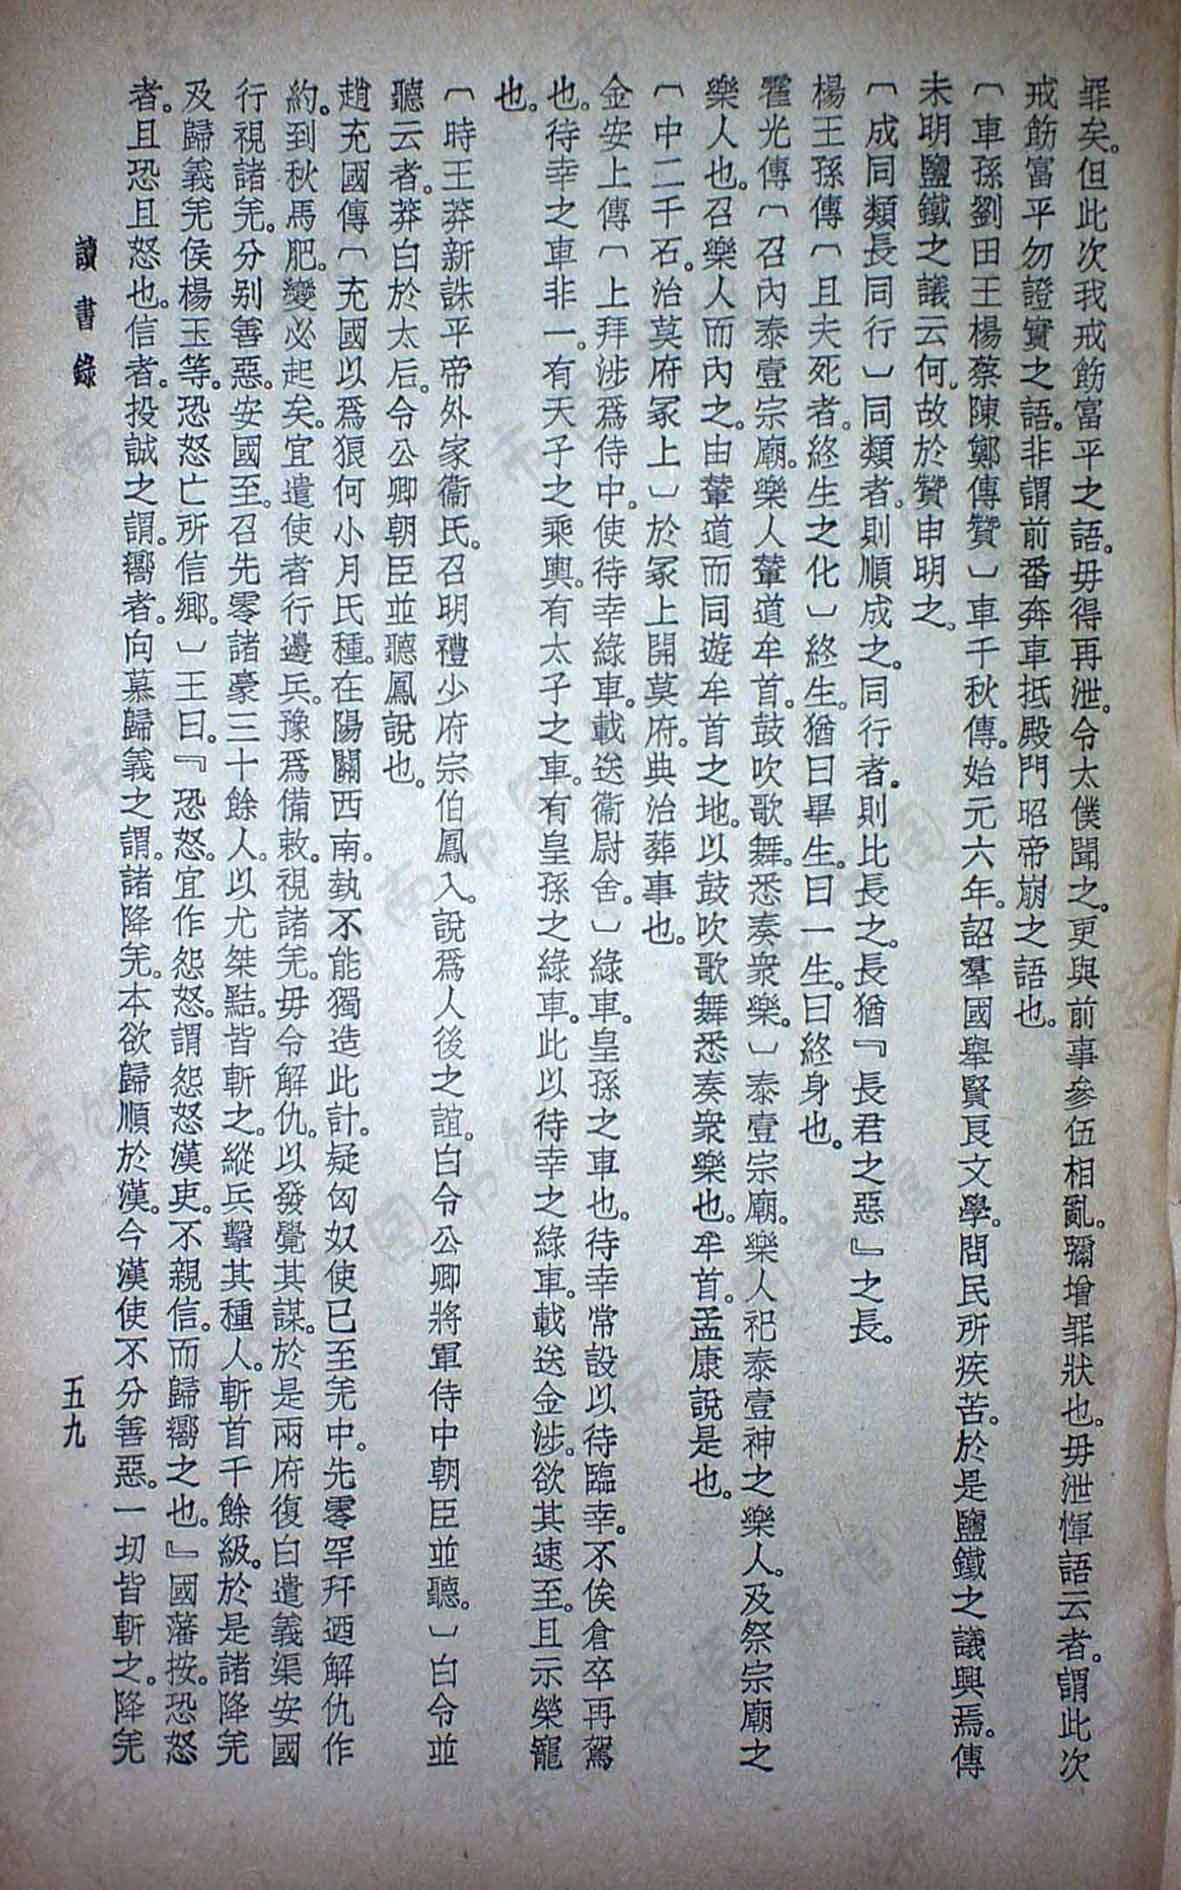 罪矣。但此次我戒飭富平之語。毋得再泄。令太僕聞之。更與前事參伍相亂。彌增罪狀也。毋泄惲語云者。謂此次
戒飭富平勿證實之語。非謂前番奔車抵殿門昭帝崩之語也。
〔車孫劉田王楊蔡陳鄭傳贊〕車千秋傳。始元六年。詔羣國舉賢良文學。問民所疾苦。於是鹽鐵之議興焉。傳
未明鹽鐵之議云何。故於贊申明之。
〔成同類長同行〕同類者。則順成之。同行者。則比長之。長猶『長君之惡』之長。
楊王孫傳〔且夫死者。終生之化〕終生。猶曰畢生。曰一生。曰終身也。
霍光傳〔召內泰壹宗廟。樂人輦道牟首。鼓吹歌舞。悉奏衆樂。〕泰壹宗廟。樂人祀泰壹神之樂人。及祭宗廟之
樂人也。召樂人而內之。由輦道而同遊牟首之地。以鼓吹歌舞悉奏衆樂也。牟首。孟康說是也。
〔中二千石。治莫府冢上〕於冢上開莫府。典治葬事也。
金安上傳〔上拜涉爲侍中。使待幸綠車。載送衞尉舍。〕綠車。皇孫之車也。待幸常設以待臨幸。不俟倉卒再駕
也。待幸之車非一。有天子之乘輿。有太子之車。有皇孫之綠車。此以待幸之綠車。載送金涉。欲其速至。且示榮寵
也。
〔時王莽新誅平帝外家衞氏。召明禮少府宗伯鳳入。說爲人後之誼。白令公卿將軍侍中朝臣並聽。〕白令並
聽云者。莽白於太后。令公卿朝臣並聽鳳說也。
趙充國傳〔充國以爲狼何小月氏種。在陽關西南。執不能獨造此計。疑匈奴使已至羌中。先零罕幵迺解仇作
約。到秋馬肥。變必起矣。宜遣使者行邊兵。豫爲備敕。視諸羌。毋令解仇。以發覺其謀。於是兩府復白遣義渠安國
行視諸羌。分別善惡。安國至。召先零諸豪三十餘人。以尤桀黠。皆斬之。縱兵擊其種人。斬首千餘級。於是諸降羌
及歸義羌侯楊玉等。恐怒亡所信鄉。〕王曰。『恐怒。宜作怨怒。謂怨怒漢吏。不親信。而歸嚮之也。』國藩按。恐怒
者。且恐且怒也。信者。投誠之謂。嚮者。向慕歸義之謂。諸降羌。本欲歸順於漢。今漢使不分善惡。一切皆斬之。降羌
讀書錄
五九